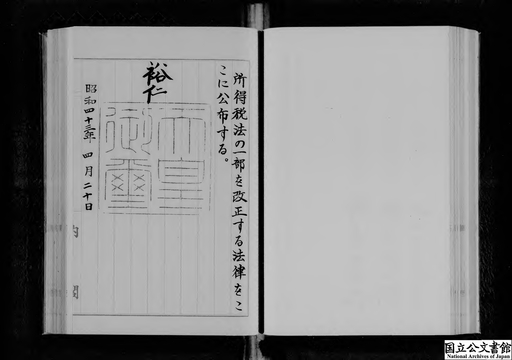 所得税法の一部を改正する法律をこ
こに公布する。
裕仁
天皇
御璽
昭和四十三年四月二十日
内閣
国立公文書館
National Archives of Japan